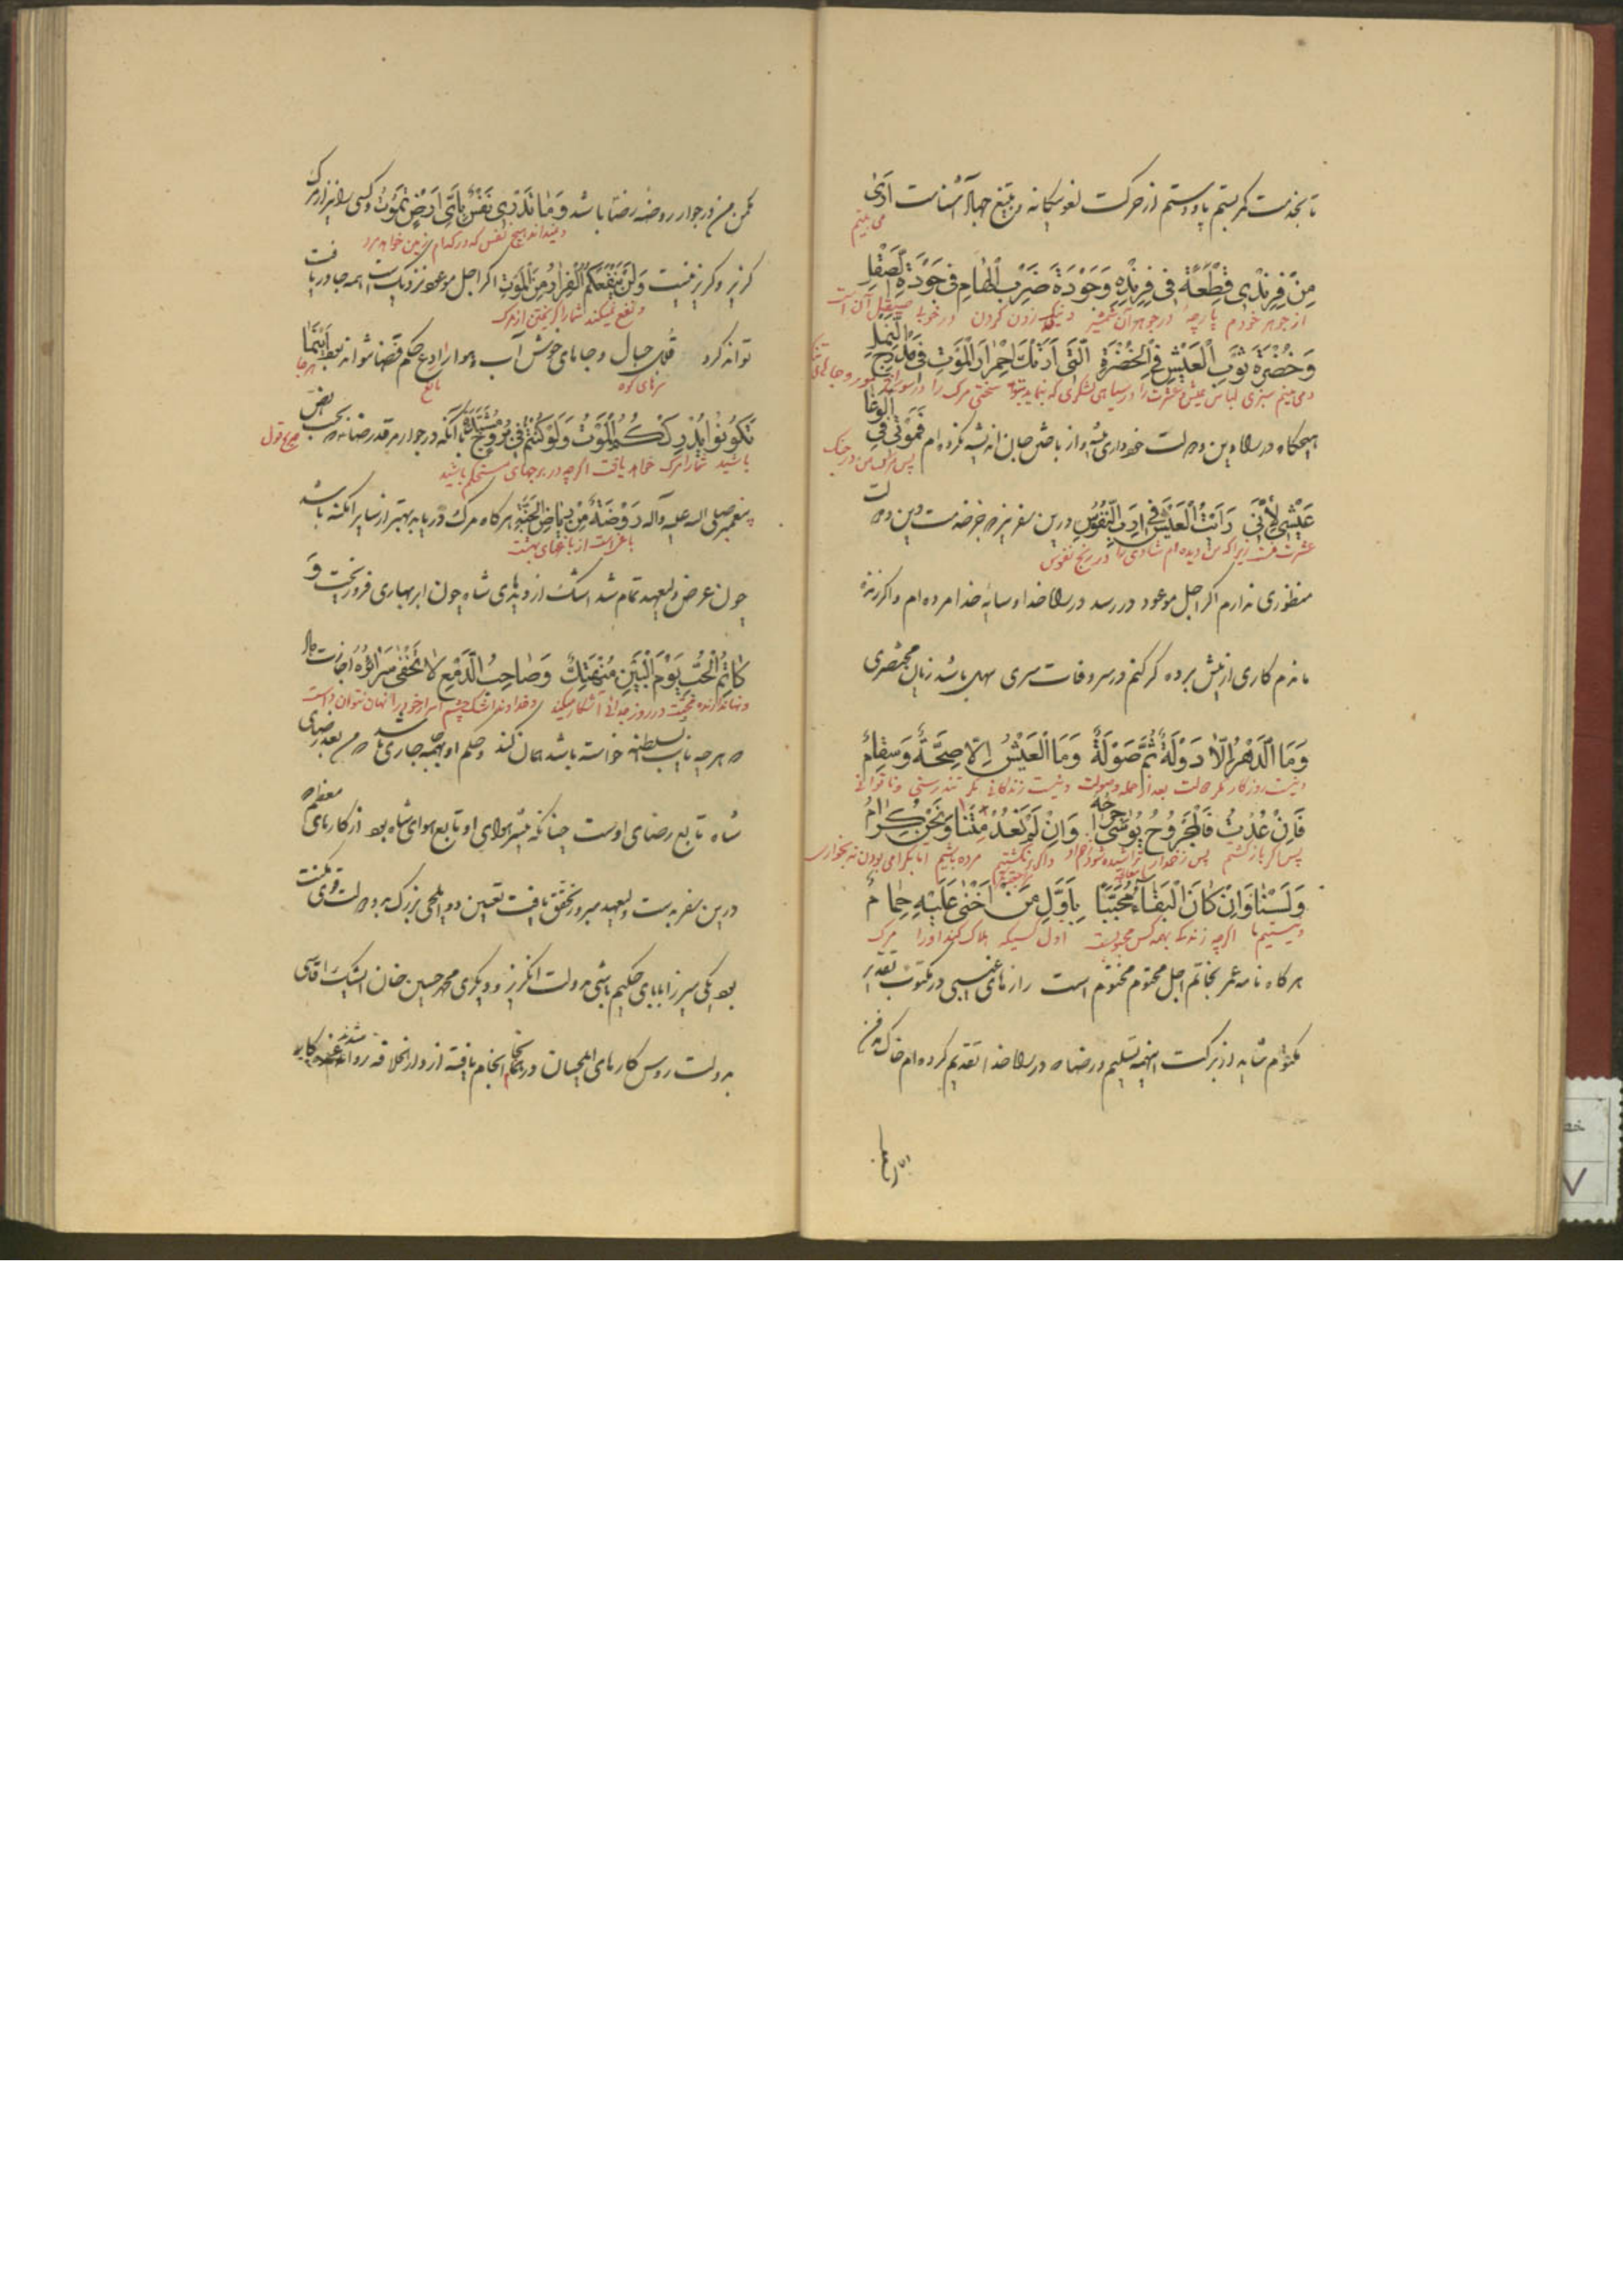 تا بخدمت کمر بستم با دوستم از حرکت لغو بیگانه و بتیغ جهاد آشناست أری
می بینم
مِنْ فِرِنْدی قِطْعَةً فی فِرِنْدِهِ وَجَوْدَةَ ضَرْبِ الْهَامِ فی جَوْدَةِ الصَّقْلِ
از جوهر خودم پارچه در جوهر آن شمشیر و نیک زدن کردن در خوبی صیقل آن است
وَخُضْرَةُ ثَوْبِ الْعَیْشِ فی الْخُضْرَةِ الَّتی أَرَتْكَ احْمِرارَ الْمَوْتِ فی مَدْرَجِ النَّمْلِ
و می بینم سبزی لباس عیش و عشرت را در سیاهی که بنماید بتو سختی مرک را در
هیچگاه در راه دین و دولت خودداری نشد و از باختن جان اندیشه نکرده ام فَمَوْتی فی الْوَغا
پس مرک من در جنک
عَیْشی لِأَنّی رَأَیْتُ الْعَیْشَ فی أَرَبِ النُّفُوسِ درین سفر نیز جز خدمت دین و دولت
عشرت منست زیرا که من دیده ام شادی را در رنج نفوس
منظوری ندارم اکر اجل موعود در رسد در راه خدا و سایه خدا مرده ام و اکر زنده
ماندم کاری از پیش برده کر کنم در سر وفات سری سهل باشد زیان مختصری
وَمَا الدَّهْرُ اِلّا دَوْلَةٌ ثُمَّ صَوْلَةٌ وَمَا الْعَیْشُ اِلّا صِحَّةٌ وَسِقامٌ
و نیست روزکار مکر دولت بعد از حمله و صولت و نیست زندکانی مکر تندرستی و ناتوانی
فَاِنْ عُدْتُ فَالْمَجْرُوحُ یُوسی جِراحَةً وَاِنْ لَمْ نَعُدْ مِتْنا وَنَحْنُ کِرامُ
پس اکر باز کشتم پس زخمدار و اکر نکشتیم مرده باشیم اما بکرامی بودن نه بخواری
وَلَسْنا وَاِنْ کانَ الْبَقاءُ مُحَبَّبًا بِأَوَّلِ مَنْ أَخْنی عَلَیْهِ حِمامُ
و نیستیم ما اکرچه زندکی بهمه کس محبوبست اول کسیکه هلاک کند او را مرک
هر کاه نامه عمر بخاتم اجل محتوم مختوم است رازهای غیبی در مکتوب تقدیر
مکتوم شاید از برکت اینهمه تسلیم و رضا که در راه خدا تقدیم کرده ام خاک مدفن
من در جوار روضه رضا باشد وَمَا تَدْری نَفْسٌ بِأَیِّ أَرْضٍ تَمُوتُ و کسی را نیز از مرک
و نمیداند هیچ نفس که در کدام زمین خواهد مرد
کزیر و کریز نیست وَلَنْ یَنْفَعَکُمُ الْفِرارُ مِنَ الْمَوْتِ اکر اجل موعود نزدیک است همه جا دریافت
و نفع نمیکند شما را کریختن از مرک
تواند کرد قلل جبال و جاهای خوش آب و هوا رادع حکم قضا نتواند بود أَیْنَمَا
سرهای کوه
مانع
هرجا
تَکُونُوا یُدْرِکْکُمُ الْمَوْتُ وَلَوْ کُنْتُمْ فی بُرُوجٍ مُشَیَّدَةٍ با آنکه در جوار مرقد رضا که بحسب نص
باشید شما را مرک خواهد یافت اکرچه در برجهای مستحکم باشید
صریح قول
پیغمبر صلی الله علیه و آله رَوْضَةٌ مِنْ رِیاضِ الْجَنَّةِ هر کاه مرک دریابد بهتر از سایر امکنه باشد
باغیست از باغهای بهشت
چون عرض ولیعهد تمام شد اشک از دیدهای شاه چون ابر بهاری فرو ریخت وَ
کاتِمُ الْحُبِّ یَوْمَ الْبَیْنِ مُنْهَتِكٌ وَصاحِبُ الدَّمْعِ لا تَخْفی سَرائِرُهُ اجازت داد
و نهان دارنده محبت در روز جدائی آشکار میکند و خداوند اشک چشم اسرار خود را نهان نتوان داشت
که هر چه نایب السلطنه خواسته باشد همان کند و حکم او بهمه جا جاری باشد که من بعد رضای
شاه تابع رضای اوست چنانکه پیشتر هوای او تابع هوای شاه بود از کارهای معظم که
درین سفر بدست ولیعهد مبرور تحقق یافت تعیین دو ایلچی بزرک بدو دولت قوی مکنت
بود یکی میرزا بابای حکیم باشی بدولت انکریز و دیکری محمد حسین خان ایشیک اقاسی
بدولت روس کارهای ایلچیان در آنجا انجام یافته از دارالخلافه روانه شدند